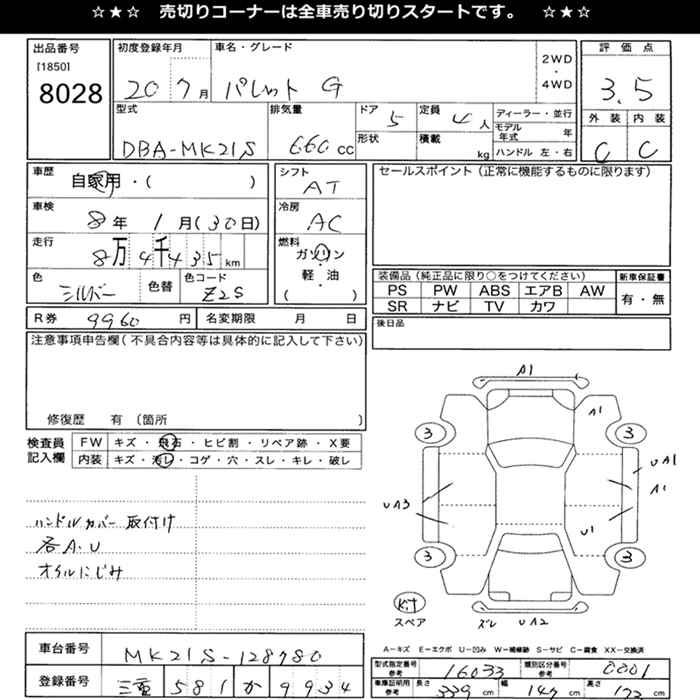 ☆★☆ 売切りコーナーは全車売り切りスタートです。 ☆★☆
出品番号 初度登録年月 車名・グレード 評価点
[1850] 2WD・4WD
8028 20 7月 パレット G 3.5
型式 排気量 ドア 5 定員 4人 ディーラー・並行 外装 内装
モデル年式 年
DBA-MK21S 660cc 形状 積載 kg ハンドル 左・右 C C
車歴 シフト セールスポイント(正常に機能するものに限ります)
自家用・( ) AT
車検 冷房
8年 1月(30日) AC
走行 燃料
8万4千435km ガソリン
色 色替 色コード ・軽・油
シルバー Z2S ( )
装備品(純正品に限り○をつけてください) 新車保証書
PS PW ABS エアB AW 有・無
SR ナビ TV カワ
R券 9960円 名変期限 月 日 後日品
注意事項申告欄(不具合内容等は具体的に記入して下さい)
修復歴 有〔箇所 〕
検査員 FW キズ・飛石・ヒビ割・リペア跡・X要
記入欄 内装 キズ・汚レ・コゲ・穴・スレ・キレ・破レ
A1
A1
3 3
UA1
A1
UA3
U1
3 3
ハンドルカバー取付け
各A.U
オイルにじみ
Kit
スペア ズレ UA2
A-キズ E-エクボ U-凹み W-補修跡 S-サビ C-腐食 XX-交換済
車台番号 MK21S-128780
型式指定番号 参考 16033 類別区分番号 参考 0001
登録番号 三重 581 か 9934
車庫証明用 参考 長さ 339cm 幅 147cm 高さ